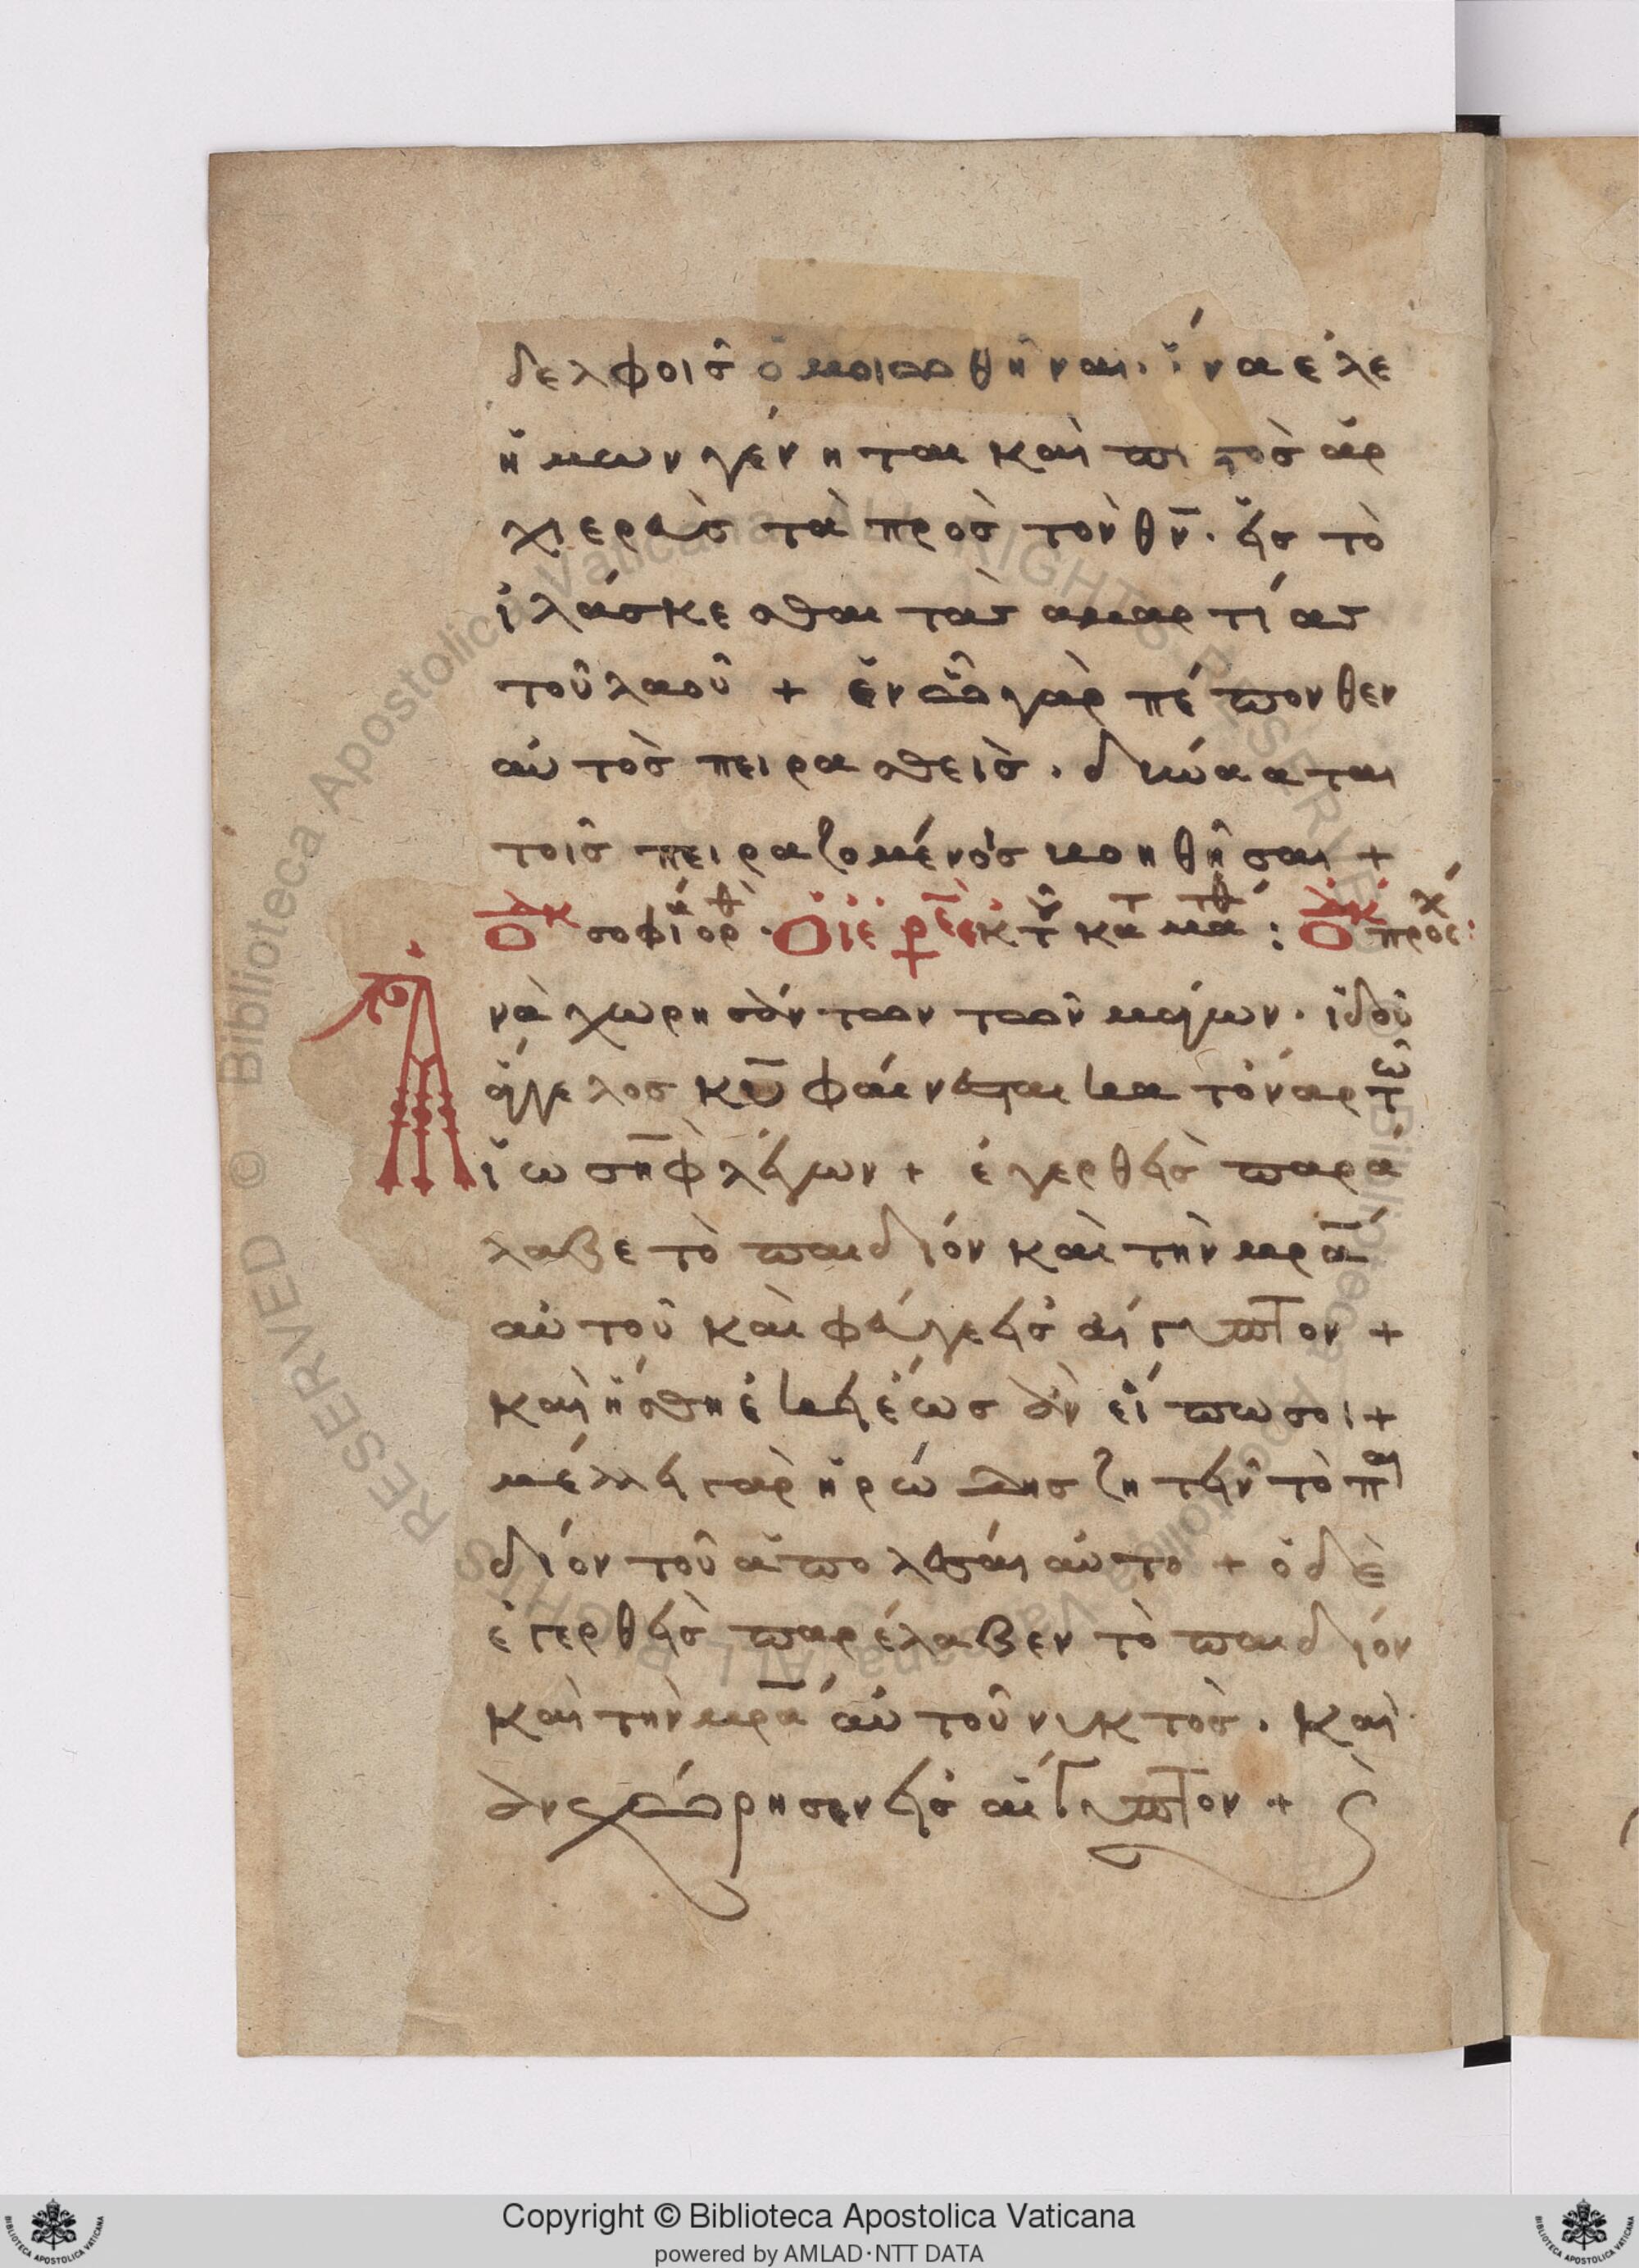 δελφοῖς ὁμοιωθῆναι· ἵνα ἐλε
ήμων γένηται καὶ πιστὸς ἀρ
χιερεὺς τὰ πρὸς τὸν θν̅· εἰς τὸ
ἱλάσκεσθαι τὰς αμαρτίας
τοῦ λαοῦ + ἐν ᾧ γὰρ πέπονθεν
αὐτὸς πειρασθεὶς· δύναται
τοῖς πειραζομένοις βοηθῆσαι +
σοφί ὀρ · κτ κα μα : προε:
Ἀναχωρησάντων τῶν μάγων· ἰδοῦ
ἄγγελος κυ̅ φαίνεται κατ' ὄναρ τῶ
ἰωσὴφ λέγων + ἐγερθεὶς παρά
λαβε τὸ παιδίον καὶ τὴν μρ̅α
αὐτοῦ καὶ φεύγε εἰς αἴγυπτον +
καὶ ἴσθη ἐκεῖ ἕως ἂν εἴπω σοι +
μέλλει γὰρ ἡρώδης ζητεῖν τὸ παι
δίον τοῦ ἀπολέσαι αὐτο + ὁ δὲ
ἐγερθεὶς παρέλαβεν τὸ παιδίον
καὶ τὴν μρ̅α αὐτοῦ νυκτὸς· καὶ
ἀνεχώρησεν εἰς αἴγυπτον +
Copyright © Biblioteca Apostolica Vaticana
powered by AMLAD·NTT DATA